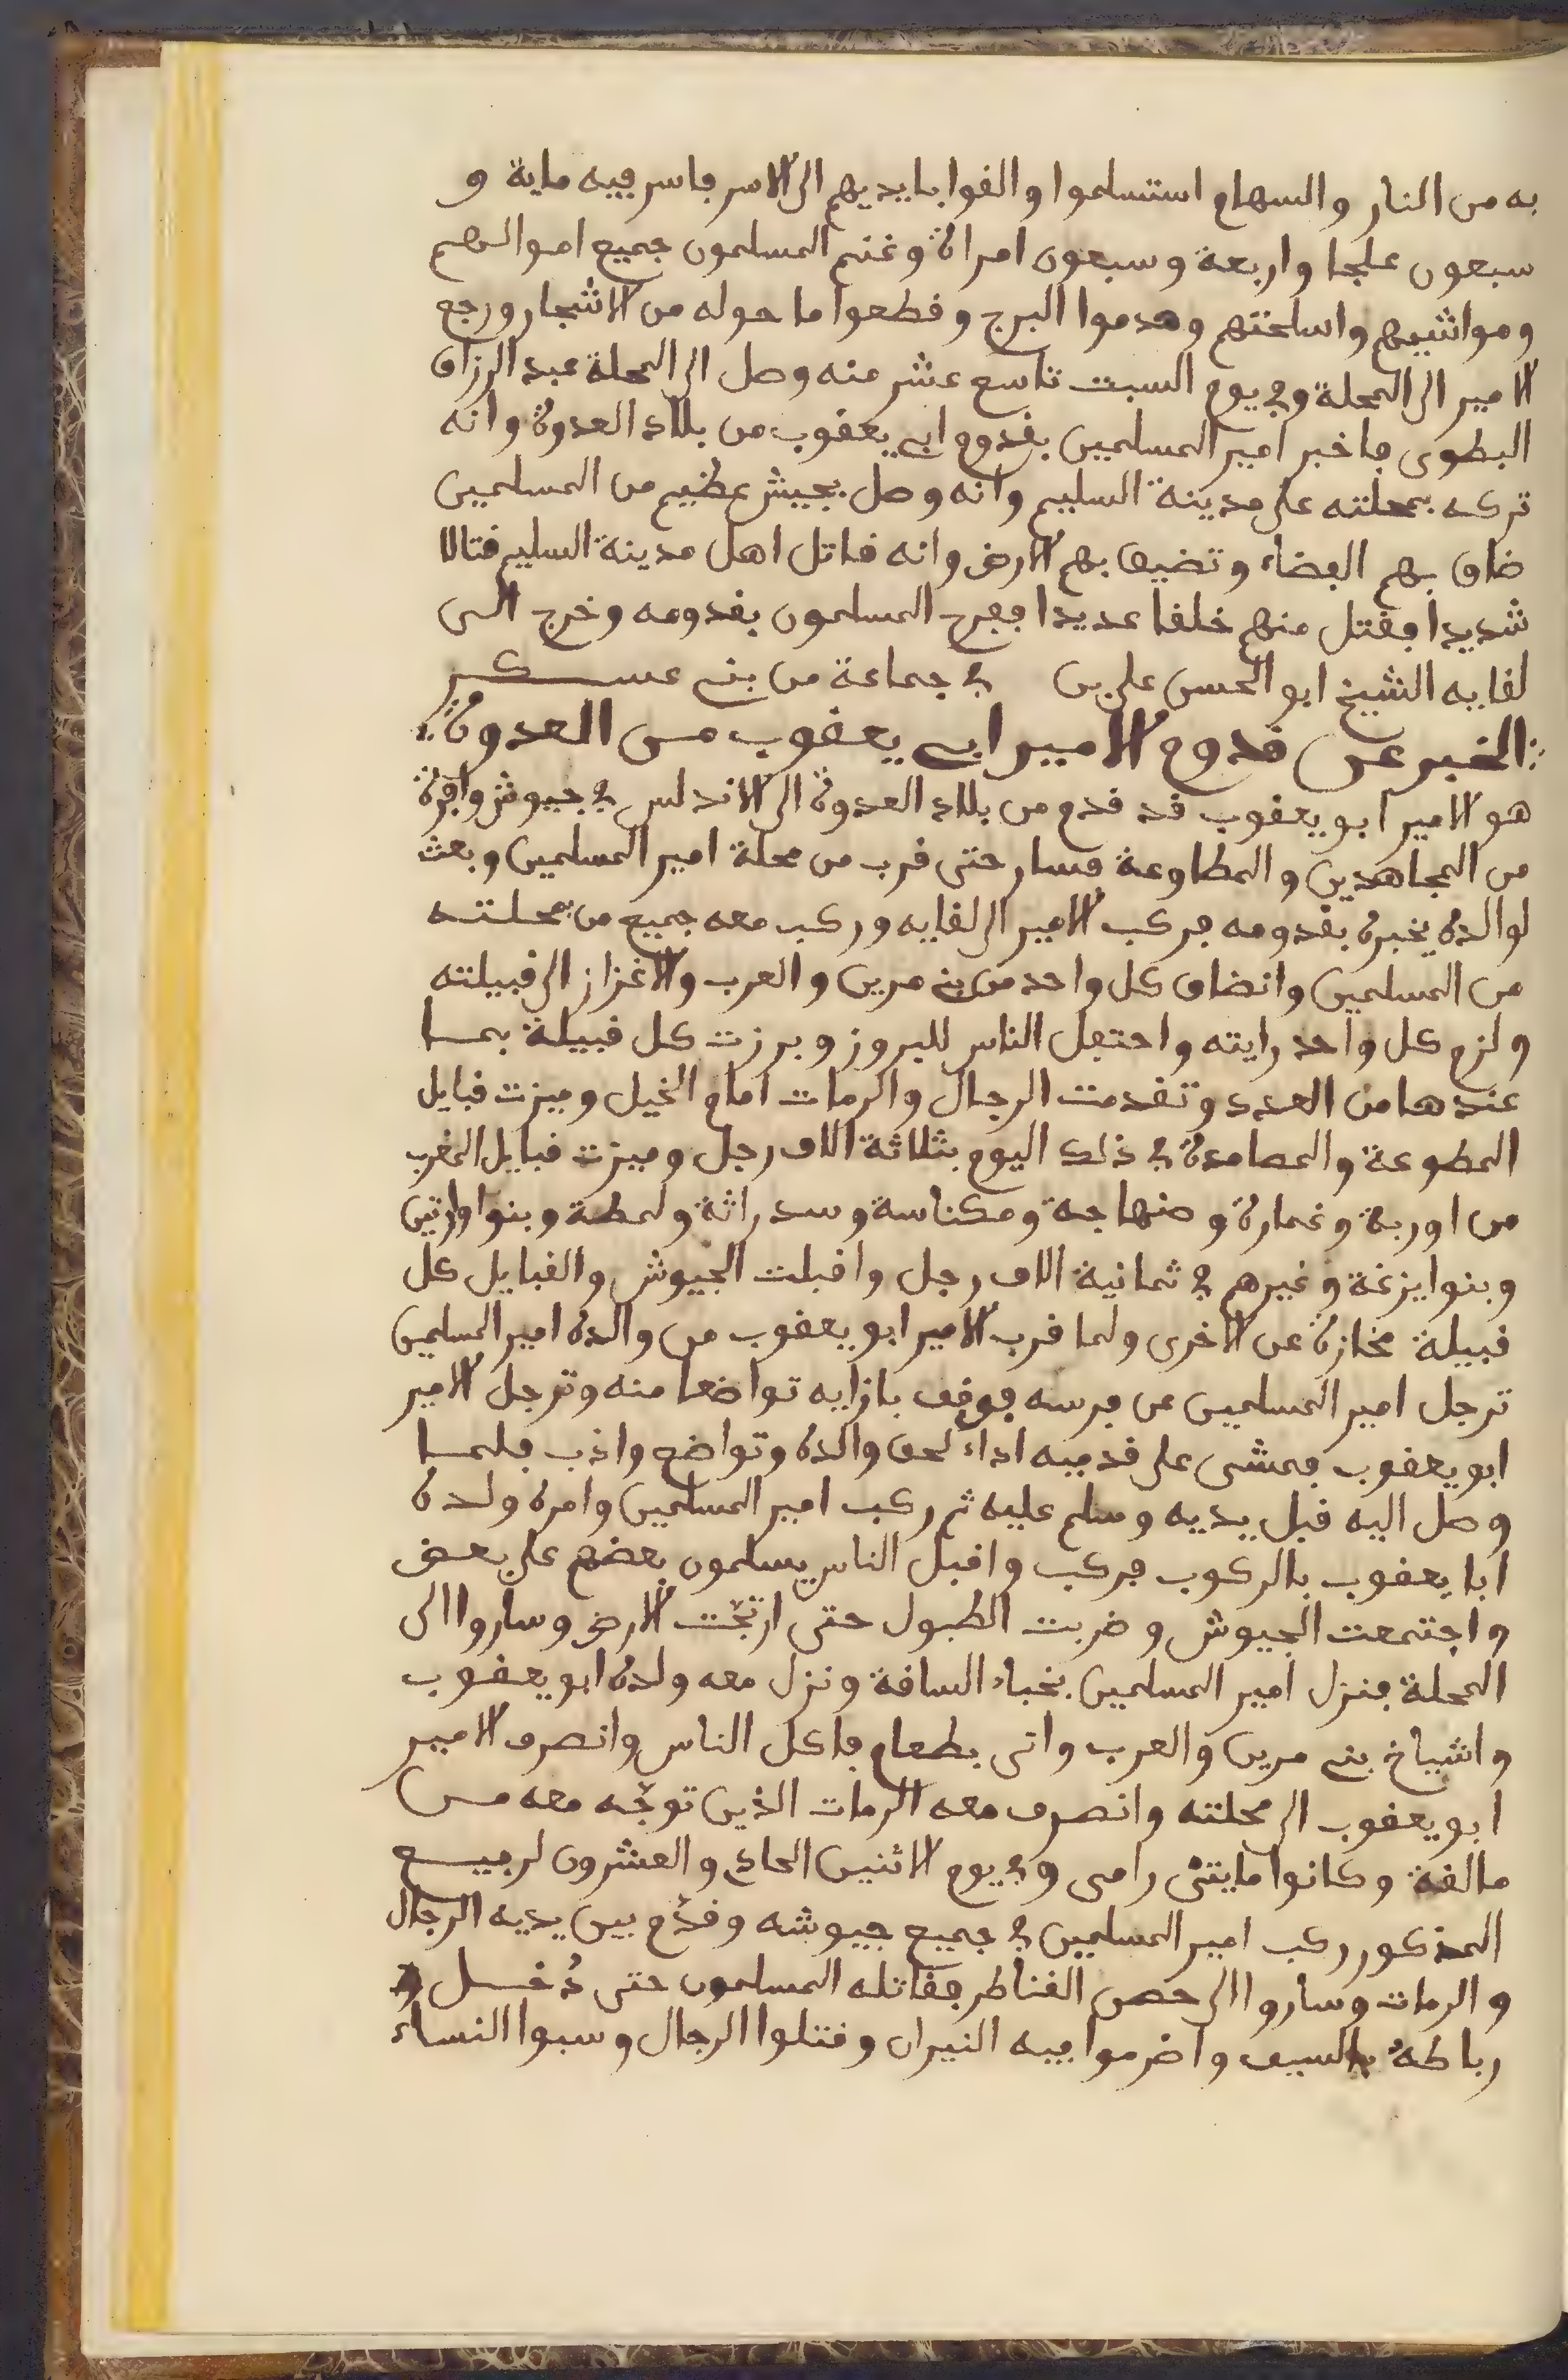 به من النار والسهام استسلموا والقوا بايديهم الى الاسر فاسر فيه ماية و
سبعون علجا واربعة وسبعون امراة وغنم المسلمون جميع اموالهم
ومواشيهم واسلحتهم وهدموا البرج وقطعوا ما حوله من الاشجار ورجع
الامير الى المحلة وفي يوم السبت تاسع عشر منه وصل الى المحلة عبد الرزاق
البطوى فاخبر امير المسلمين بقدوم ابي يعقوب من بلاد العدوة وانه
تركه بمحلته على مدينة السليم وانه وصل بجيش عظيم من المسلمين
ضاق بهم الفضاء وتضيق بهم الارض وانه قاتل اهل مدينة السليم قتالا
شديدا فقتل منهم خلقا عديدا ففرح المسلمون بقدومه وخرج الى
لقايه الشيخ ابو الحسن علي بن في جماعة من بني عسكر
الخبر عن قدوم الامير ابي يعقوب من العدوة
هو الامير ابو يعقوب قد قدم من بلاد العدوة الى الاندلس في جيوش وافرة
من المجاهدين والمطاوعة فسار حتى قرب من محلة امير المسلمين وبعث
لوالده يخبره بقدومه فركب الامير الى لقايه وركب معه جميع من بمحلته
من المسلمين وانضاف كل واحد من بني مرين والعرب والاغزاز الى قبيلته
ولزم كل واحد رايته واحتفل الناس للبروز وبرزت كل قبيلة بما
عندها من العدد وتقدمت الرجال والرمات امام الخيل وميزت قبايل
المطوعة والمصامدة في ذلك اليوم بثلاثة الاف رجل وميزت قبايل المغرب
من اوربة وغمارة وصنهاجة ومكناسة وسدراتة ولمطة وبنوا وارتين
وبنوا يزغة وغيرهم في ثمانية الاف رجل واقبلت الجيوش والقبايل كل
قبيلة مخازة عن الاخرى ولما قرب الامير ابو يعقوب من والده امير المسلمين
ترجل امير المسلمين عن فرسه فوقف بازايه تواضعا منه وترجل الامير
ابو يعقوب فمشى على قدميه اداء لحق والده وتواضع واذب فلما
وصل اليه قبل يديه وسلم عليه ثم ركب امير المسلمين وامره ولده
ابا يعقوب بالركوب فركب واقبل الناس يسلمون بعضهم على بعض
واجتمعت الجيوش وضربت الطبول حتى ارتجت الارض وساروا الى
المحلة فنزل امير المسلمين بخباء الساقة ونزل معه ولده ابو يعقوب
واشياخ بني مرين والعرب واتى بطعام فاكل الناس وانصرف الامير
ابو يعقوب الى محلته وانصرف معه الرمات الذين توجه معه من
مالقة وكانوا مايتى رامى وفي يوم الاثنين الحادي والعشرون لربيع
المذكور ركب امير المسلمين في جميع جيوشه وقدم بين يديه الرجال
والرمات وساروا الى حصن القناطر فقاتله المسلمون حتى دخلوا
رباطه بالسيف واضرموا فيه النيران وقتلوا الرجال وسبوا النساء